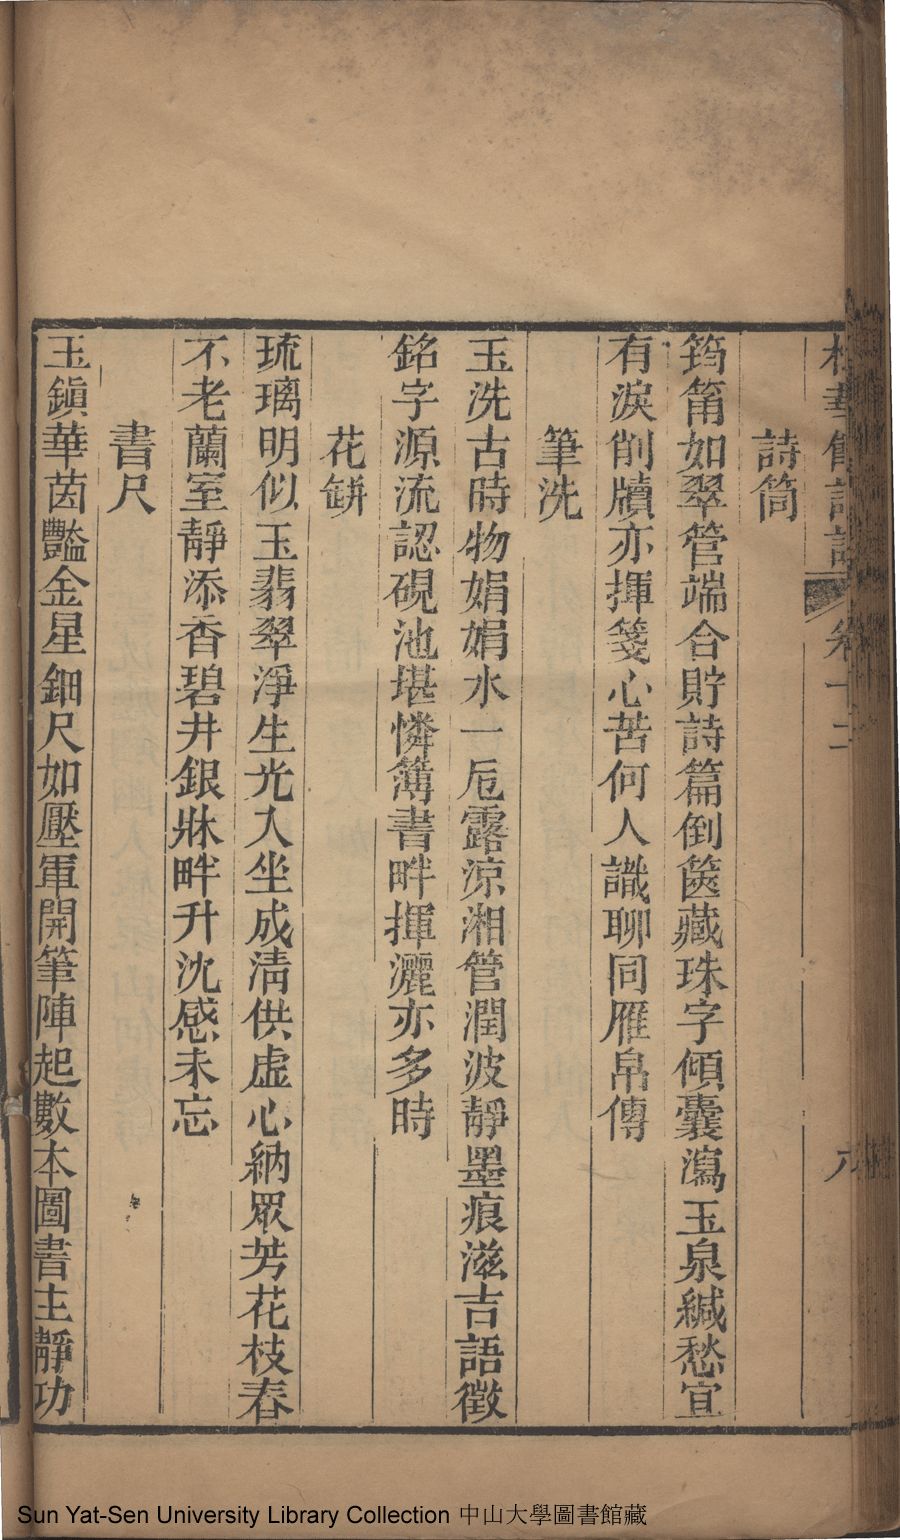 詩筒
筠筩如翠管端合貯詩篇倒篋藏珠字傾囊瀉玉泉緘愁宜
有淚削牘亦揮箋心苦何人識聊同雁帛傳
筆洗
玉洗古時物娟娟水一卮露涼湘管潤波靜墨痕滋吉語徵
銘字源流認硯池堪憐簿書畔揮灑亦多時
花缾
琉璃明似玉翡翠淨生光入坐成淸供虛心納眾芳花枝春
不老蘭室靜添香碧井銀牀畔升沈感未忘
書尺
玉鎭華茵豔金星鈿尺如壓軍開筆陣起數本圖書主靜功
Sun Yat-Sen University Library Collection 中山大學圖書館藏